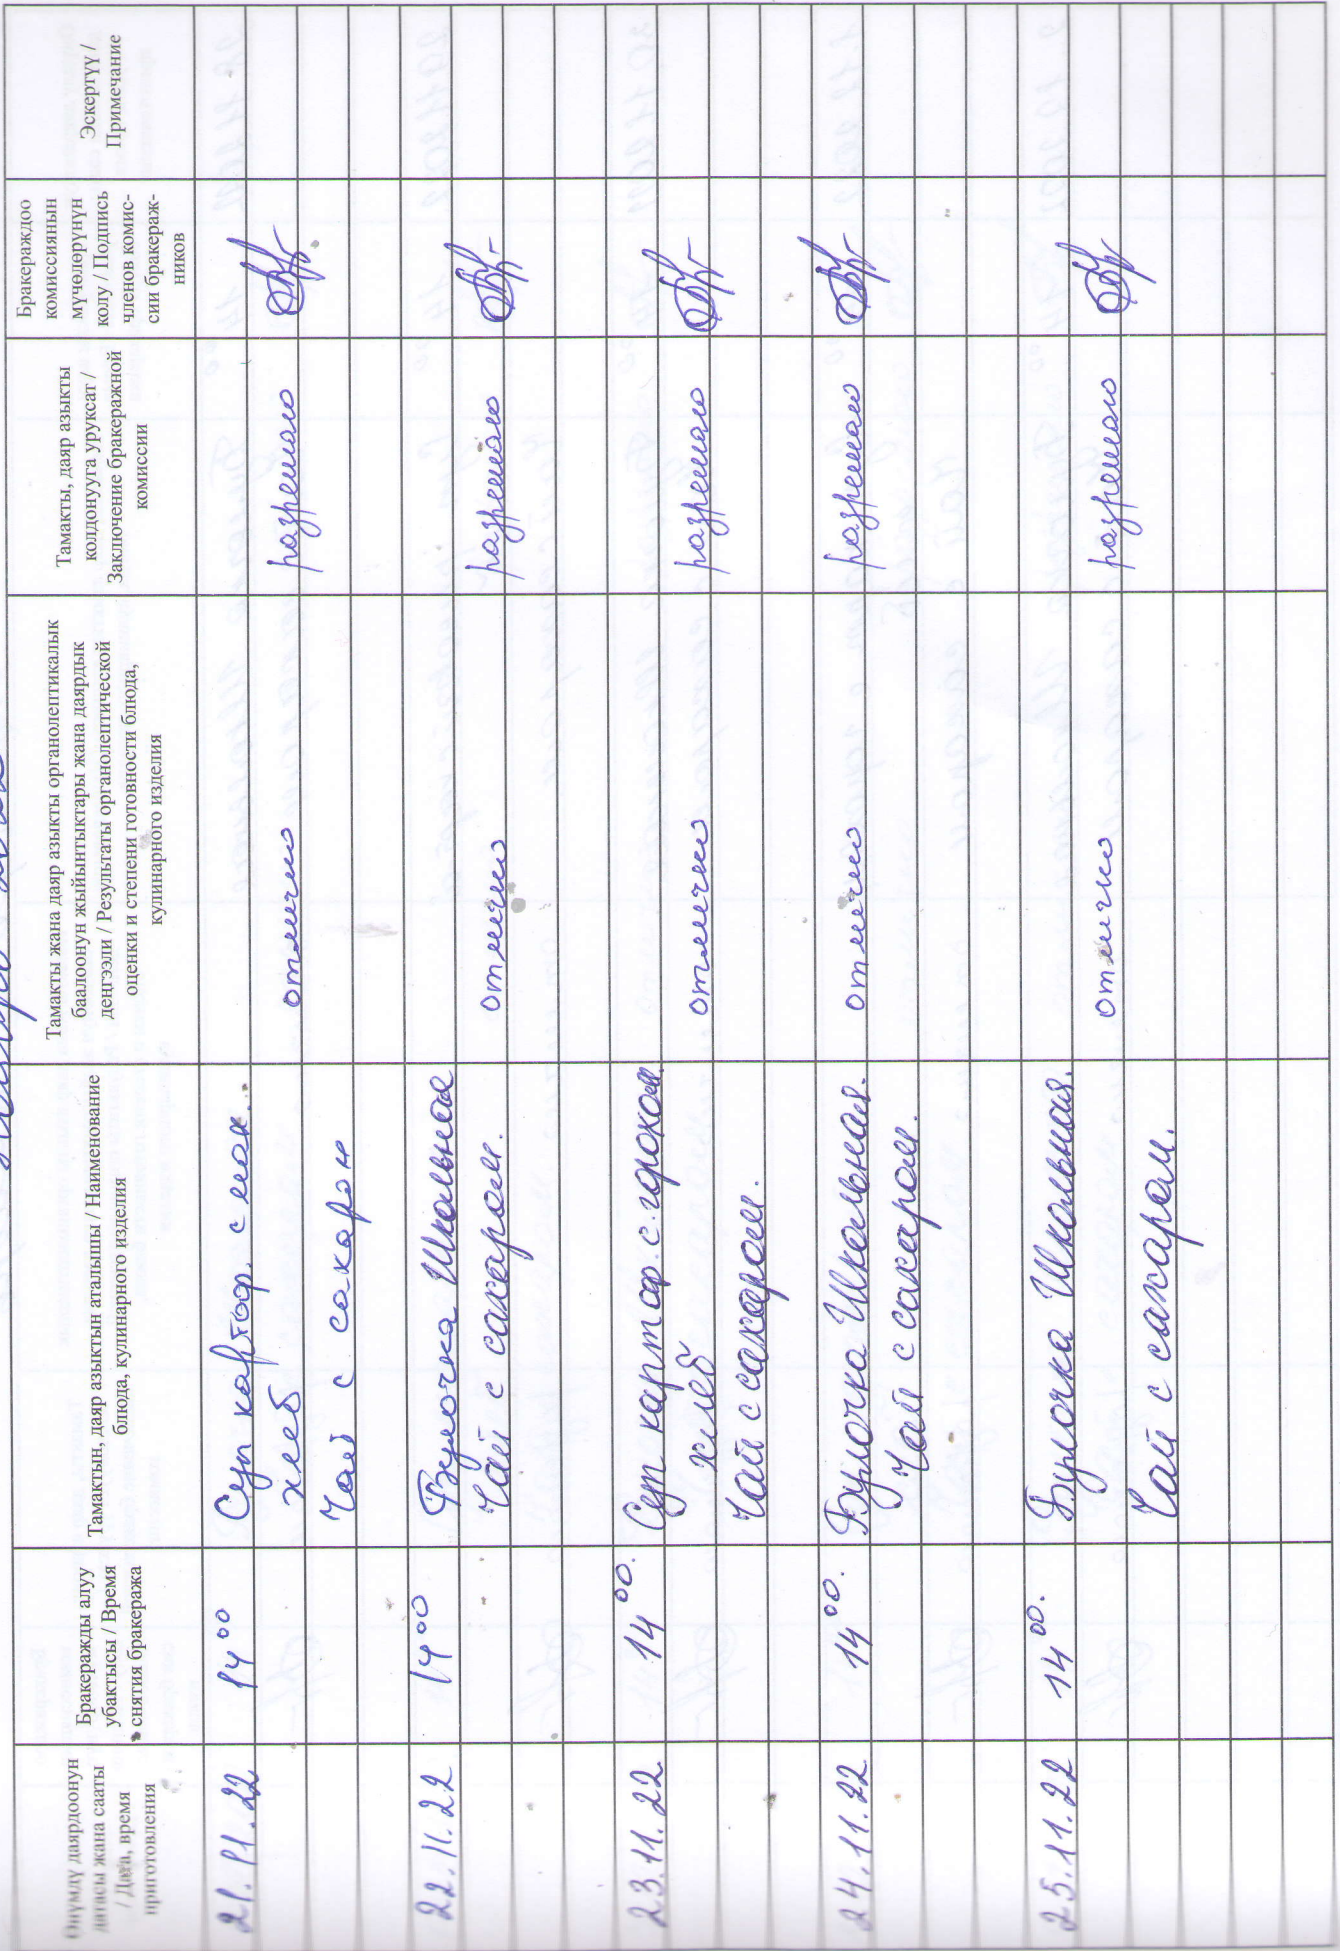 Өнүмдү даярдоонун
датасы жана сааты
/ Дата, время
приготовления
Бракеражды алуу
убактысы / Время
снятия бракеража
Тамактын, даяр азыктын аталышы / Наименование
блюда, кулинарного изделия
Тамакты жана даяр азыкты органолептикалык
баалоонун жыйынтыктары жана даярдык
деңгээли / Результаты органолептической
оценки и степени готовности блюда,
кулинарного изделия
Тамакты, даяр азыкты
колдонууга уруксат /
Заключение бракеражной
комиссии
Бракераждоо
комиссиянын
мүчөлөрүнүн
колу / Подпись
членов комис-
сии бракераж-
ников
Эскертүү /
Примечание
21.11.22 14 00 Суп картоф. с мак.
хлеб отлично разрешаю
Чай с сахаром
22.11.22 14 00 Булочка Школьная
Чай с сахаром. отлично разрешаю
23.11.22. 14 00. Суп картоф. с. горохом.
хлеб отлично разрешаю
Чай с сахаром.
24.11.22 14 00. Булочка Школьная. отлично разрешаю
Чай с сахаром.
25.11.22 14 00. Булочка Школьная.
отлично разрешаю
Чай с сахаром.